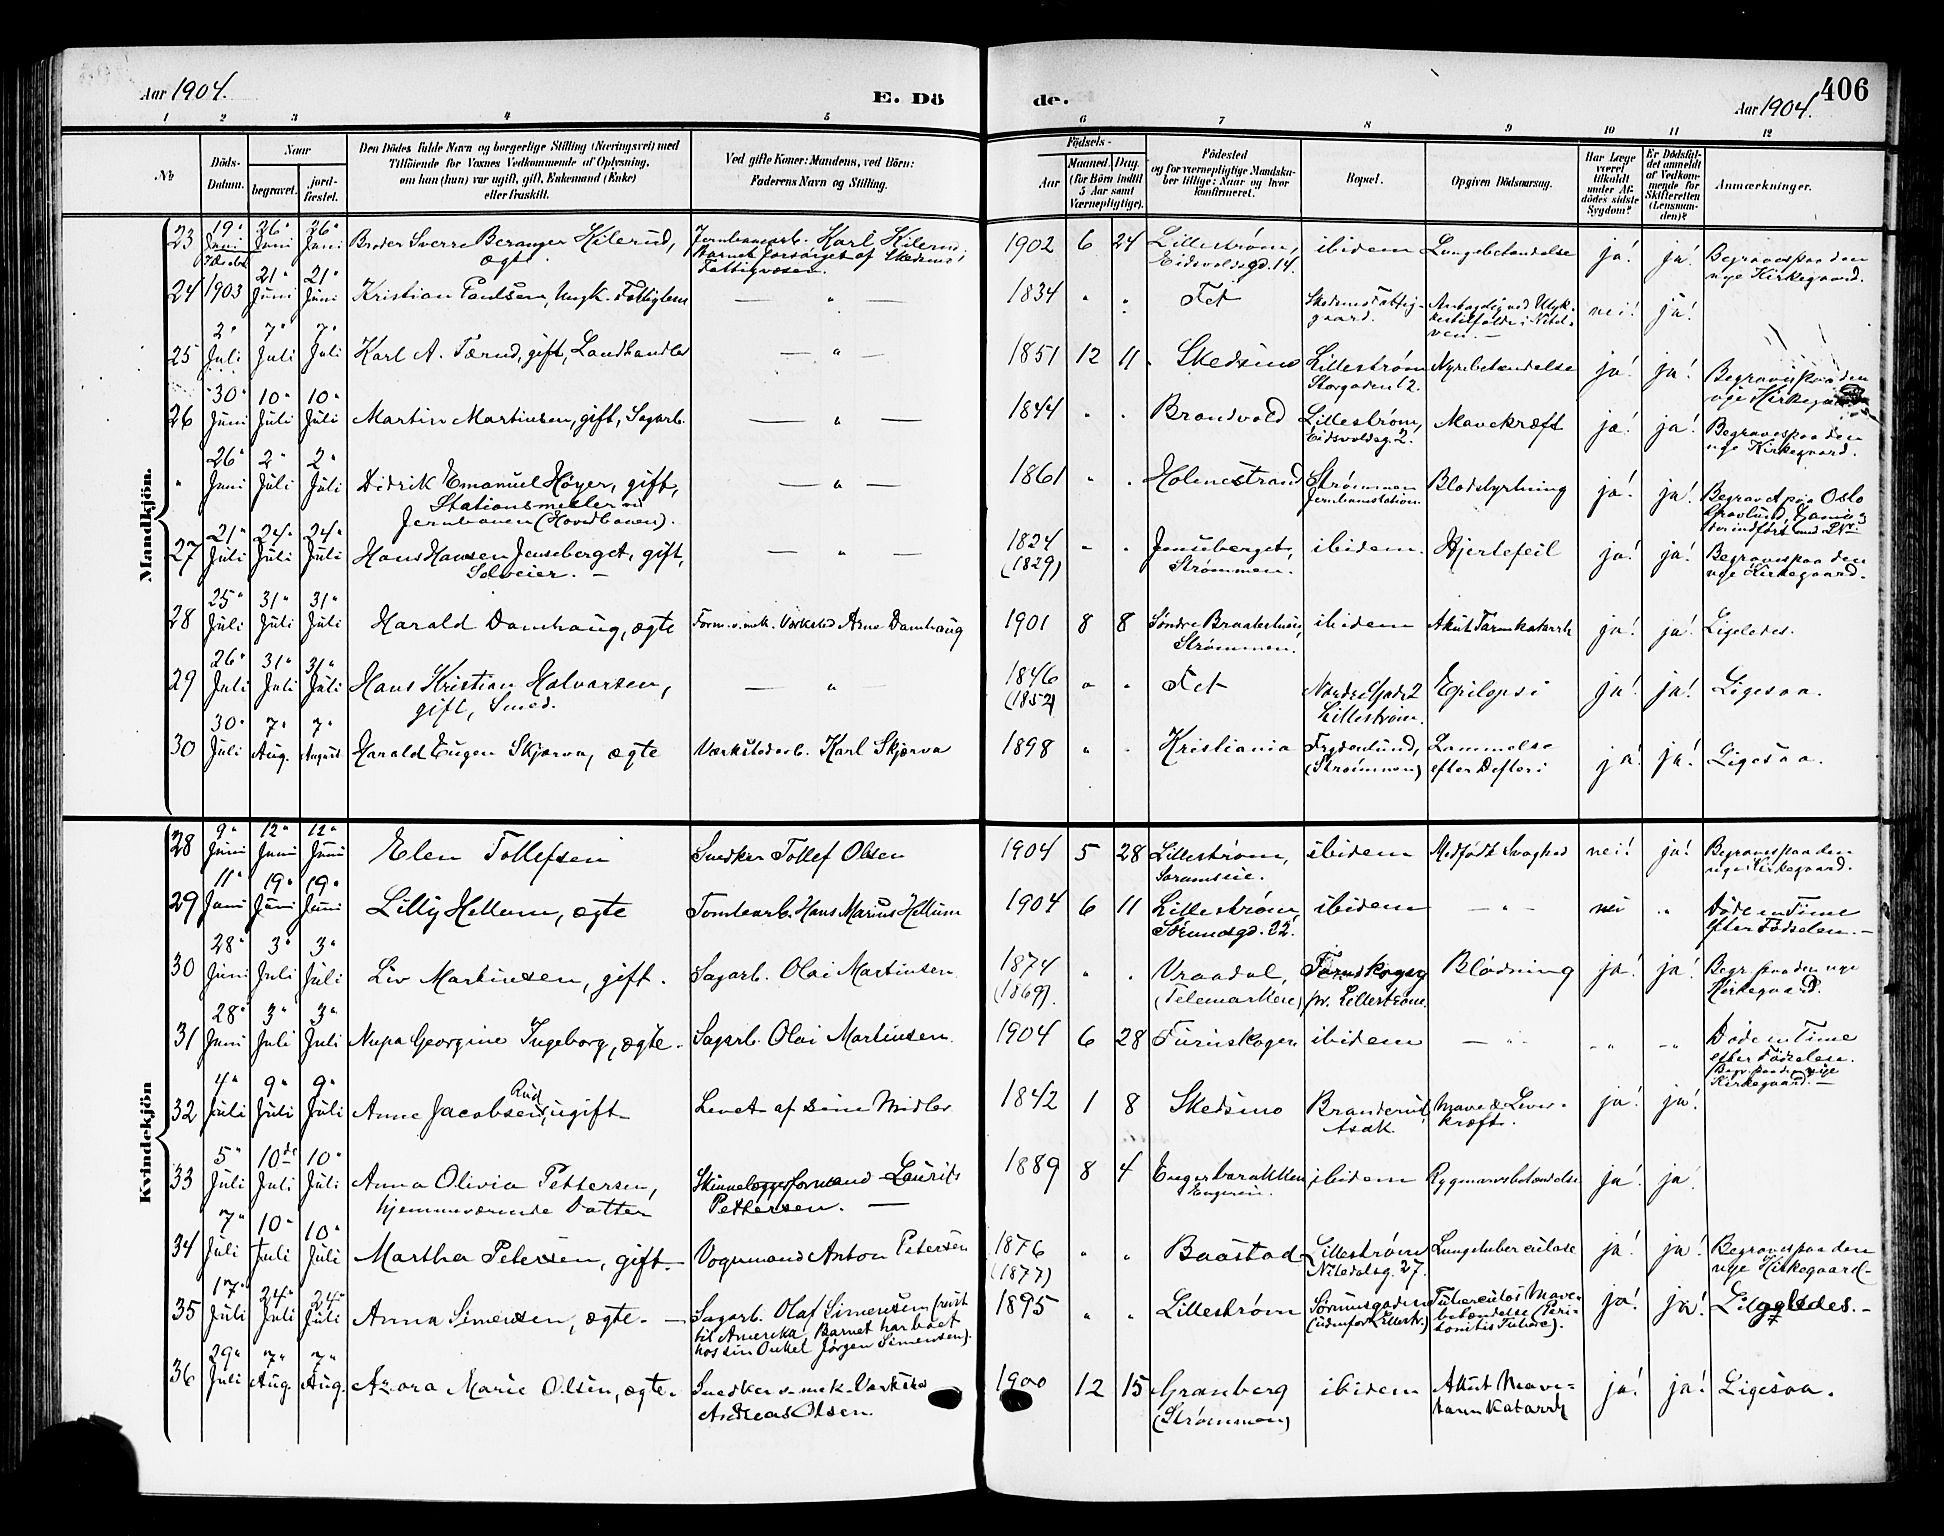 Aar 1904.
E. Dö
de.
Aar 1904.
406
1 2 3 4 5 6 7 8 9 10 11 12
No
Döds-Datum.
Naar
begravet.
jord-fæstet.
Den Dödes fulde Navn og borgerlige Stilling (Næringsvei) med
Tilföiende for Voxnes Vedkommende af Oplysning,
om han (hun) var ugift, gift, Enkemand (Enke)
eller fraskilt.
Ved gifte Koner: Mandens, ved Börn:
Faderens Navn og Stilling.
Födsels-
Aar
Maaned. Dag.
(for Börn indtil
5 Aar samt
Værnepligtige).
Födested
og for værnepligtige Mandska-
ber tillige: Naar og hvor
konfirmeret.
Bopæl.
Opgiven Dödsaarsag.
Har Læge
været
tilkaldt
under Af-
dödes sidste
Sygdom?
Er Dödsfal-
det anmeldt
af Vedkom-
mende for
Skifteretten
(Lensman-
den)?
Anmærkninger.
Mandkjön.
23 19" Juni 26" Juni 26" Juni Broder Sverre Beranger Kilerud, ægte. Jernbanearb. Karl Kilerud. Barnet forsørget af Skedsmo Fattigvæsen. 1902 6 24 Lillestrøm, Eidsvoldsgd. 14. ibidem Lungebetændelse ja! ja! Begravespaa den nye Kirkegaard.
24 1903 21" Juni 21" Juni Kristian Paulsen, Ungk. Fattiglem — " — 1834 " " Fet Skedsmo Fattiggaard. Antagelig ved Ulykkestilfælde i Nitelven. — nei! ja!
25 2" Juli 7" Juli 7" Juli Karl A. Tærud, gift, Landhandler — " — 1851 12 11 Skedsmo Lillestrøm Storgaden 12. Nyrebetændelse ja! ja! Begravespaa den nye Kirkegaard
26 30" Juni 10" Juli 10" Juli Martin Martinsen, gift, Sagarb. — " — 1844 " " Brandvold Lillestrøm, Eidsvoldsg. 2. Mavekræft ja! ja! Begravespaa den nye Kirkegaard.
" 26" Juni 2" Juli 2" Juli Didrik Emanuel Høyer, gift, Stationsmester ved Jernbanen (Hovedbanen). — " — 1861 " " Holmestrand Strømmen Jernbanestation. Blodstyrtning ja! ja! Begravet paa Oslo Gravlund,
27 21" Juli 24" Juli 24" Juli Hans Hansen Jenseberget, gift, Selveier. — — " — 1824 (1829) " " Jenseberget, Strømmen. ibidem. Hjertefeil ja! ja! Begravespaa den nye Kirkegaard.
28 25" Juli 31" Juli 31" Juli Harald Damhaug, ægte Form. v. mek. Værksted Arne Damhaug 1901 8 8 Søndre Braatehuse, Strømmen. ibidem Akut Tarmkatarrh ja! ja! Ligeledes.
29 26" Juli 31" Juli 31" Juli Hans Kristian Halvorsen, gift, Smed. — " — 1846 (1852) " " Fet Nordre Gade 2 Lillestrøm. Epilepsi ja! ja! Ligesaa.
30 30" Juli 7" Aug. 7" August Harald Eugen Skjærva, ægte Værkstedarb. Karl Skjærva 1898 " " Kristiania Frydenlund, (Strømmen) Lammelse efter Defteri ja! ja! Ligesaa.
Kvindekjön
28 9" Juni 12" Juni 12" Juni Elen Tollefsen Snedker Tollef Olsen 1904 5 28 Lillestrøm, ibidem Medfødt Svaghed nei! ja! Begravespaa den nye Kirkegaard.
29 11" Juni 19" Juni 19" Juni Lilly Hellum, ægte Tomtearb. Hans Marius Hellum 1904 6 11 Lillestrøm, Sørumsgd. 22. ibidem — " — nei " Døde en Time efter Fødselen. —
30 28" Juni 3" Juli 3" Juli Liv Martinsen, gift. Sagarb. Olai Martinsen 1874 (1869). " " Vraadal, (Telemarken) pr. Lillestrøm. Blødning ja! ja! Begr. paa den nye Kirkegaard.
31 28" Juni 3" Juli 3" Juli Georgine Ingeborg, ægte. Sagarb. Olai Martinsen. 1904 6 28 Furuskogen ibidem — " — " — " Døde en Time efter Fødselen. Begr. paa den nye Kirkegaard. —
32 4" Juli 9" Juli 9" Juli Anne Jacobsen Rud, ugift Levet af sine Midler 1842 1 8 Skedsmo Branderud, Asak. Mave & Leverkræft. ja! ja!
33 5" Juli 10de Juli 10" Juli Anna Olivia Pettersen, hjemmeværende Datter Skinnelæggerformand Laurits Pettersen. — 1889 8 4 Engerbarakken Engerein. ibidem Rygmarvsbetændelse ja! ja
34 7" Juli 10" Juli 10" Juli Martha Petersen, gift. Vognmand Anton Petersen 1876 (1877) " " Baastad Lillestrøm Nitedalsg. 27. Lungetuberculose ja! ja! Begravespaa den nye Kirkegaard —
35 17" Juli 24" Juli 24" Juli Anna Simensen, ægte. — Sagarb. Olaf Simensen (reist til Amerika, Barnet har boet hos sin Onkel Jørgen Simensen). 1895 " " Lillestrøm Sørumsgaden (udenfor Lillestr.) Tuberculøs Mavebetændelse (Peritonitis Tuberc). ja! ja! Ligeledes. —
36 29" Juli 7" Aug. 7" Aug. Azora Marie Olsen, ægte. Snedker v. mek. Værksted Andreas Olsen. 1900 12 15 Granberg (Strømmen) ibidem Akut Mave-tarmkatarrh ja! ja! Ligesaa.